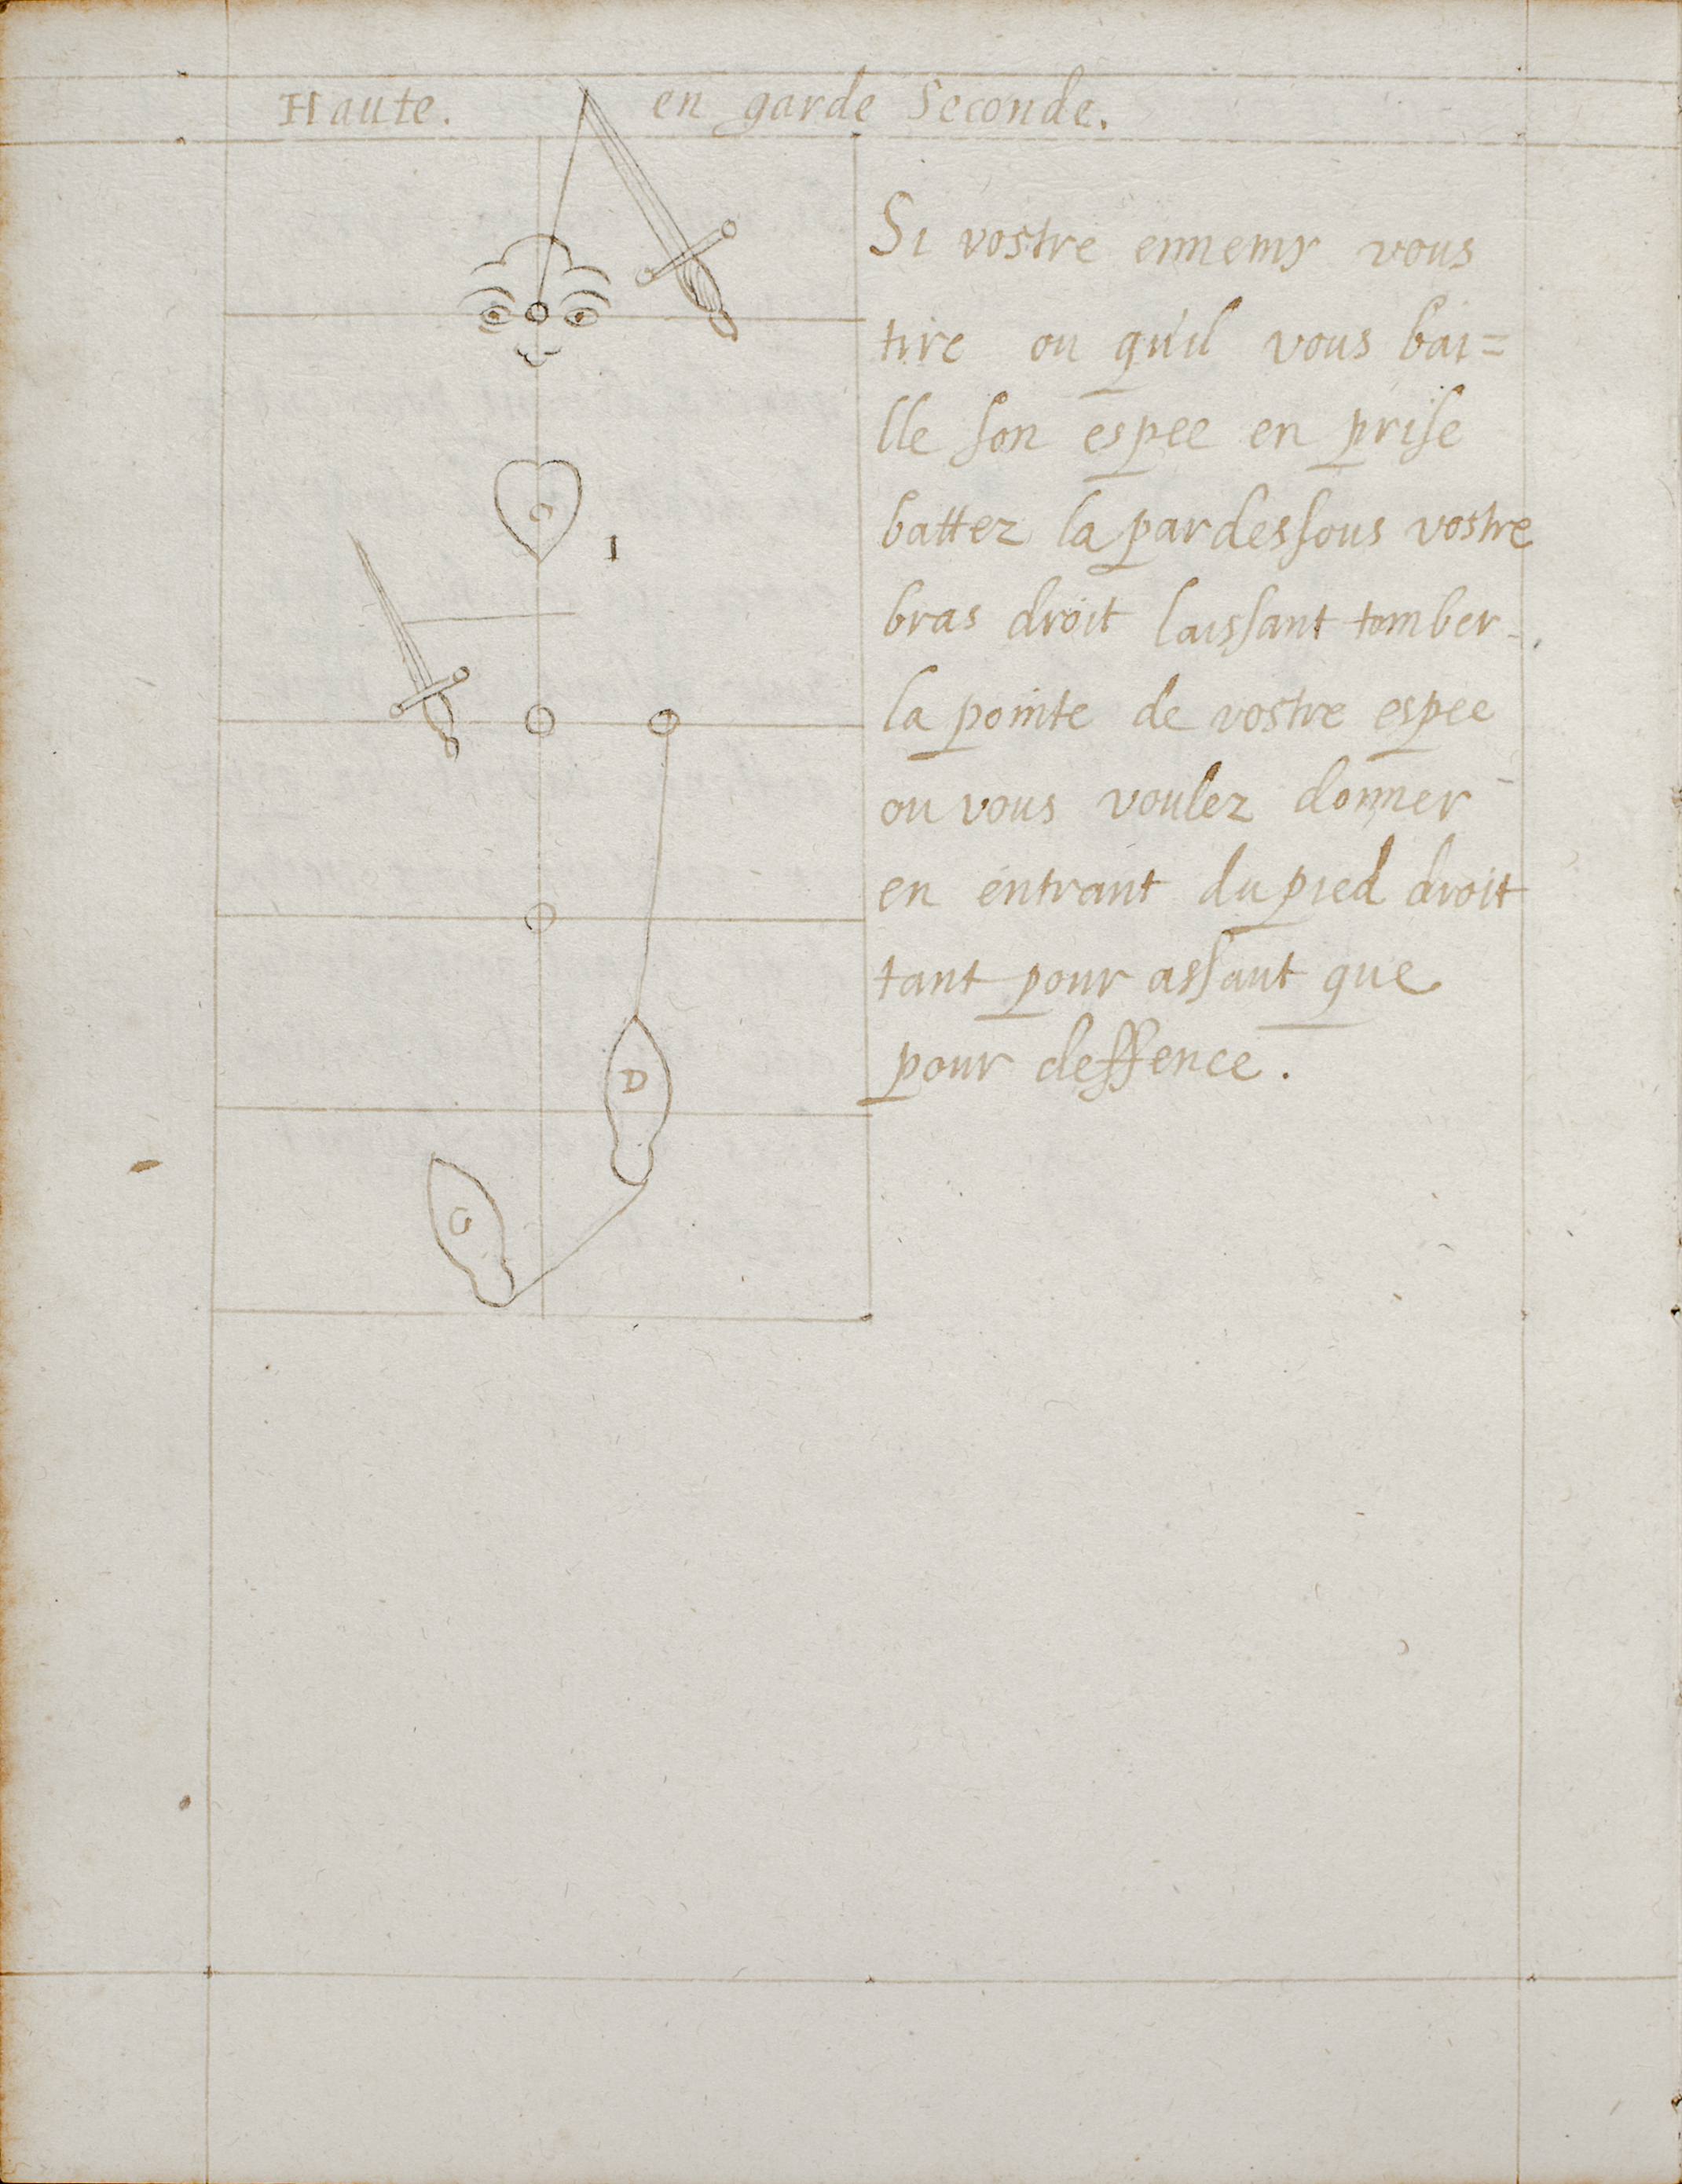 Haute. en garde Seconde.
Si vostre ennemy vous
tire ou qu'il vous bai=
lle son espee en prise
battez la pardessous vostre
bras droit laissant tomber
la pointe de vostre espee
ou vous voulez donner
en entrant du pied droit
tant pour assaut que
pour deffence.
G
I
D
G